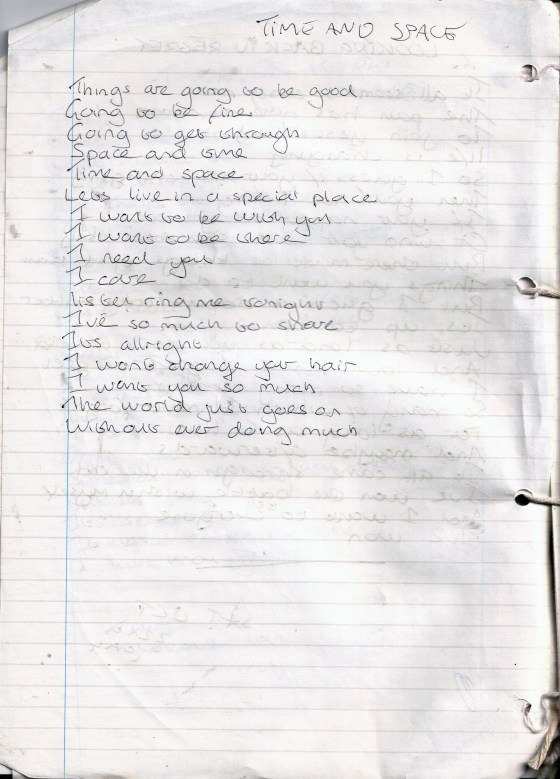 TIME AND SPACE
Things are going to be good
Going to be fine
Going to get through
Space and time
Time and space
Lets live in a special place
I want to be with you
I want to be there
I need you
I care
Listen ring me tonight
I've so much to share
Its allright
I wont change your hair
I want you so much
The world just goes on
Without ever doing much